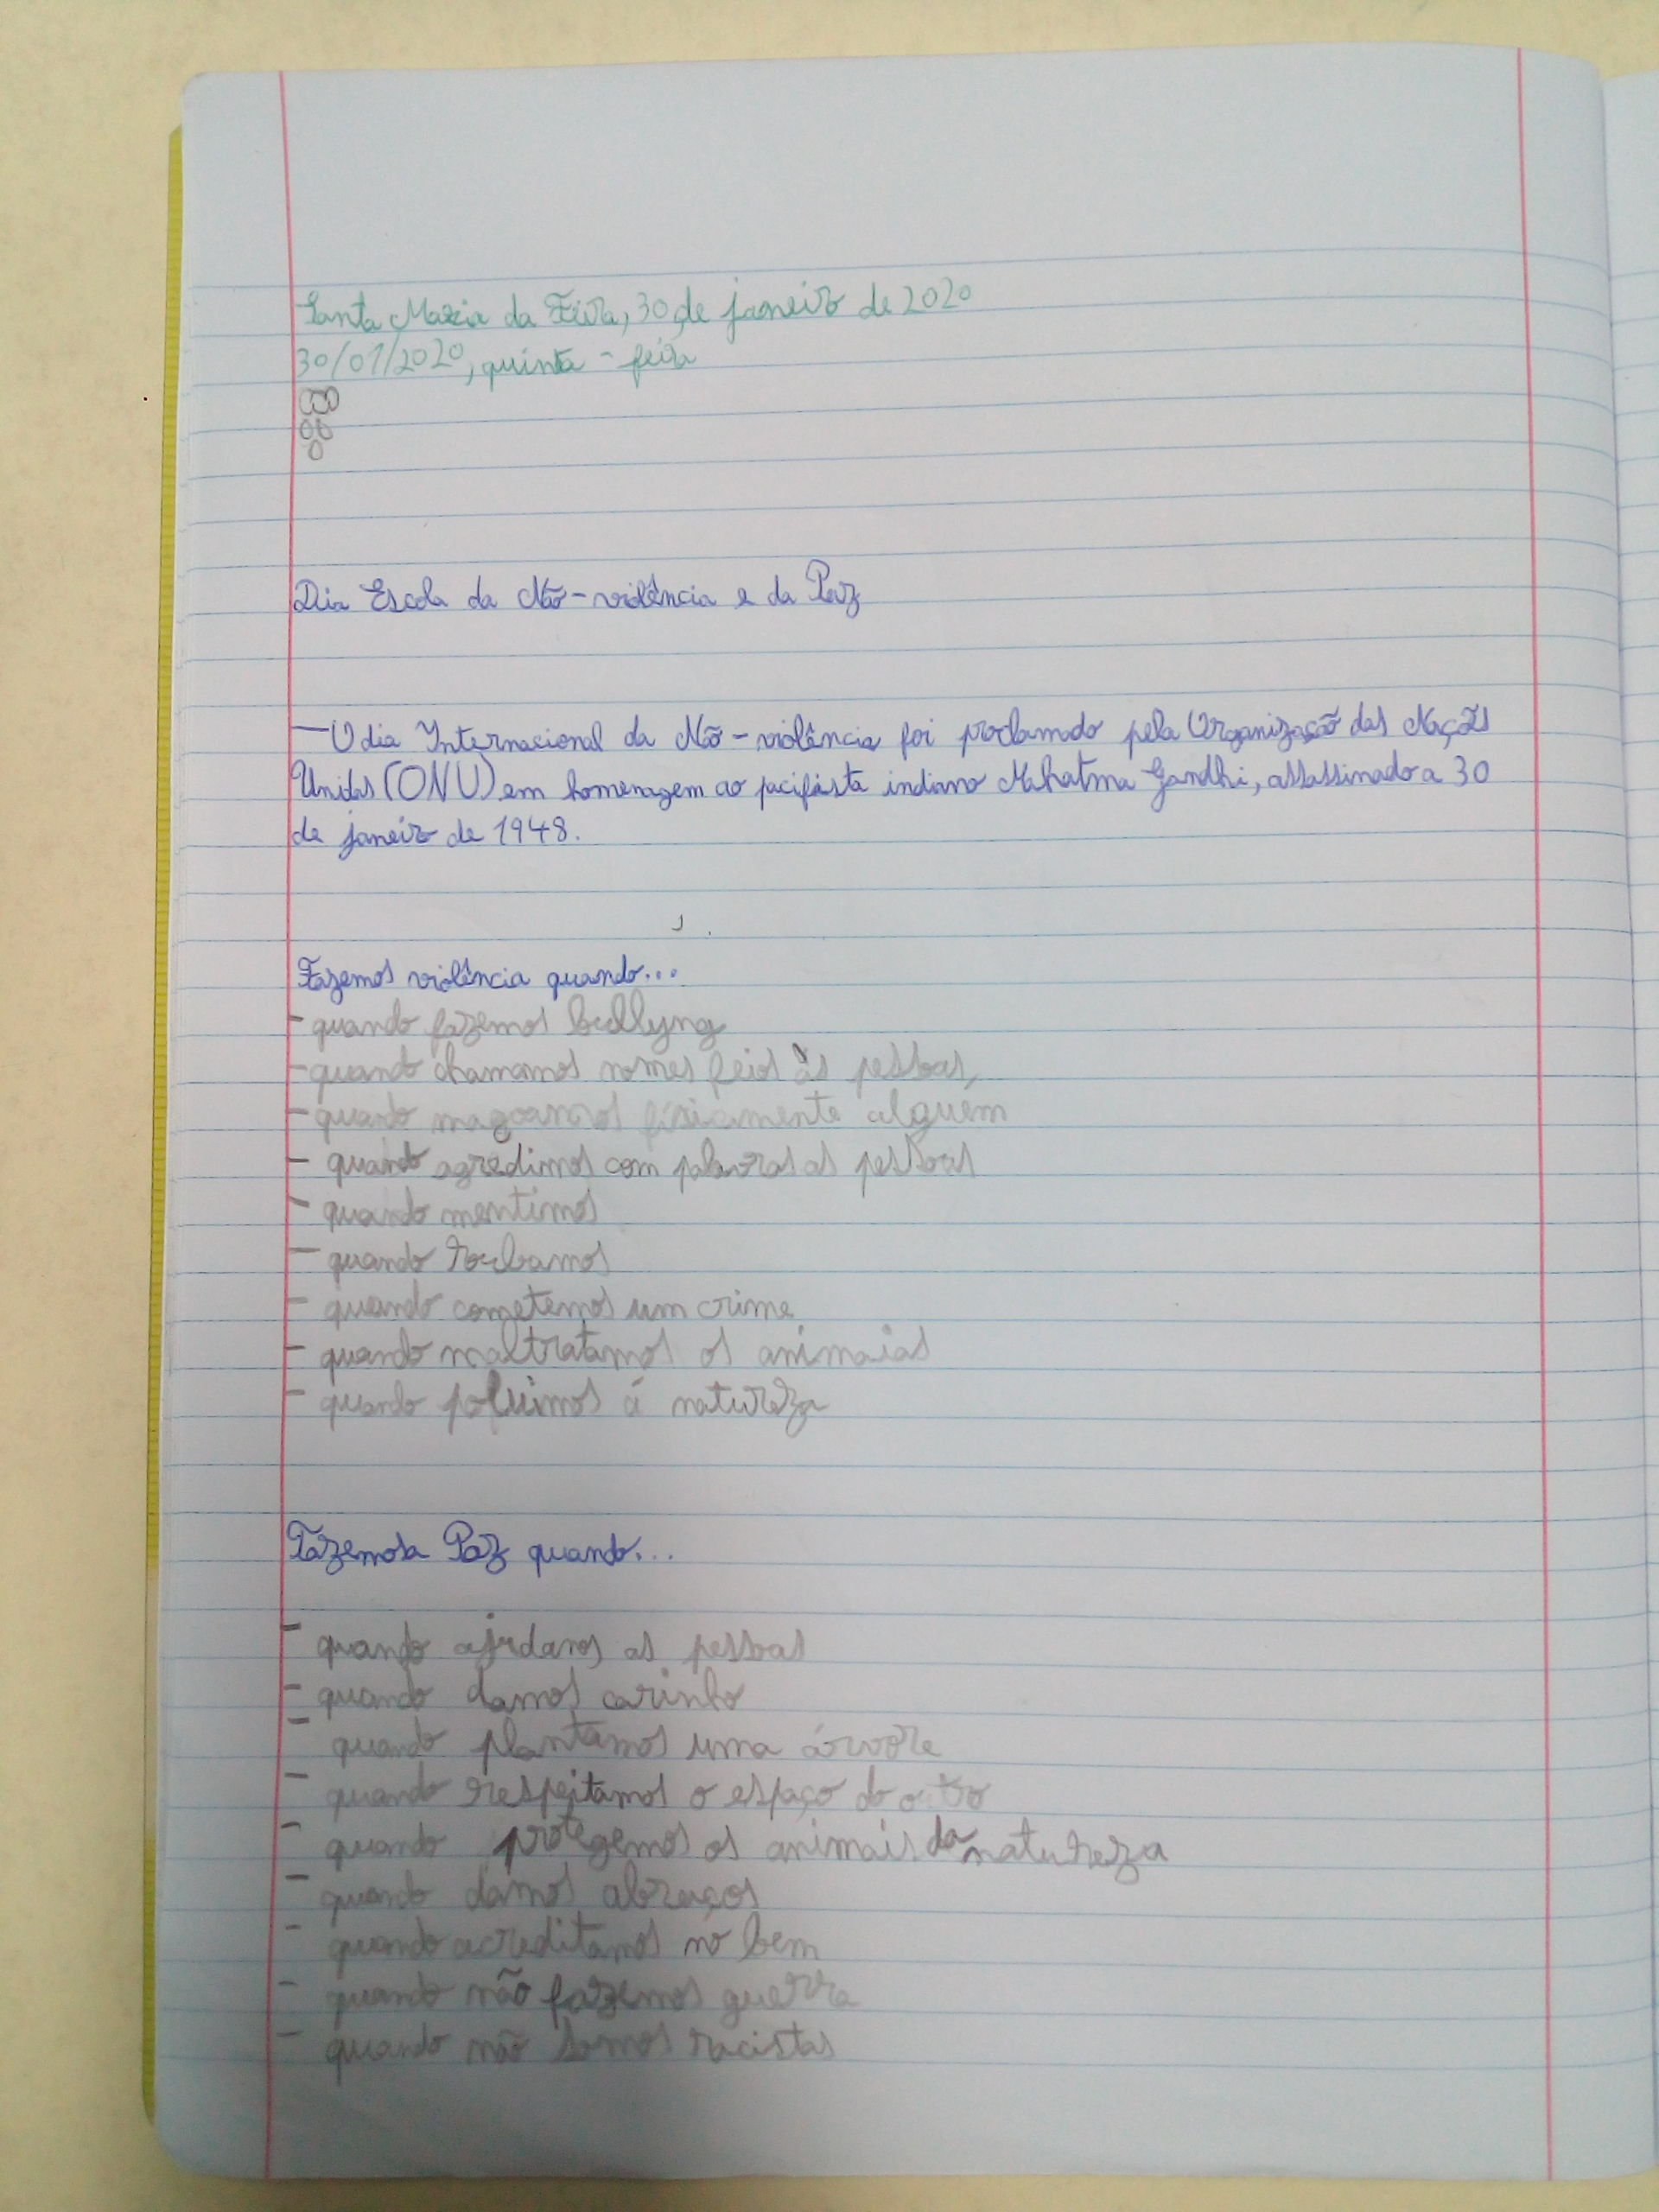 Santa Maria da Feira, 30 de janeiro de 2020
30/01/2020, quinta-feira
Dia Escola da Não-violência e da Paz
—O dia Internacional da Não-violência foi proclamado pela Organização das Nações
Unidas (ONU) em homenagem ao pacifista indiano Mahatma Gandhi, assassinado a 30
de janeiro de 1948.
Fazemos violência quando...
- quando fazemos bullyng
- quando chamamos nomes feios às pessoas,
- quando magoamos fisicamente alguem
- quando agredimos com palavras as pessoas
- quando mentimos
- quando roubamos
- quando cometemos um crime
- quando maltratamos os animais
- quando poluimos á natureza
Fazemos a Paz quando...
- quando ajudamos as pessoas
- quando damos carinho
- quando plantamos uma árvore
- quando respeitamos o espaço do outro
- quando protegemos os animais da natureza
- quando damos abraços
- quando acreditamos no bem
- quando não fazemos guerra
- quando não somos racistas